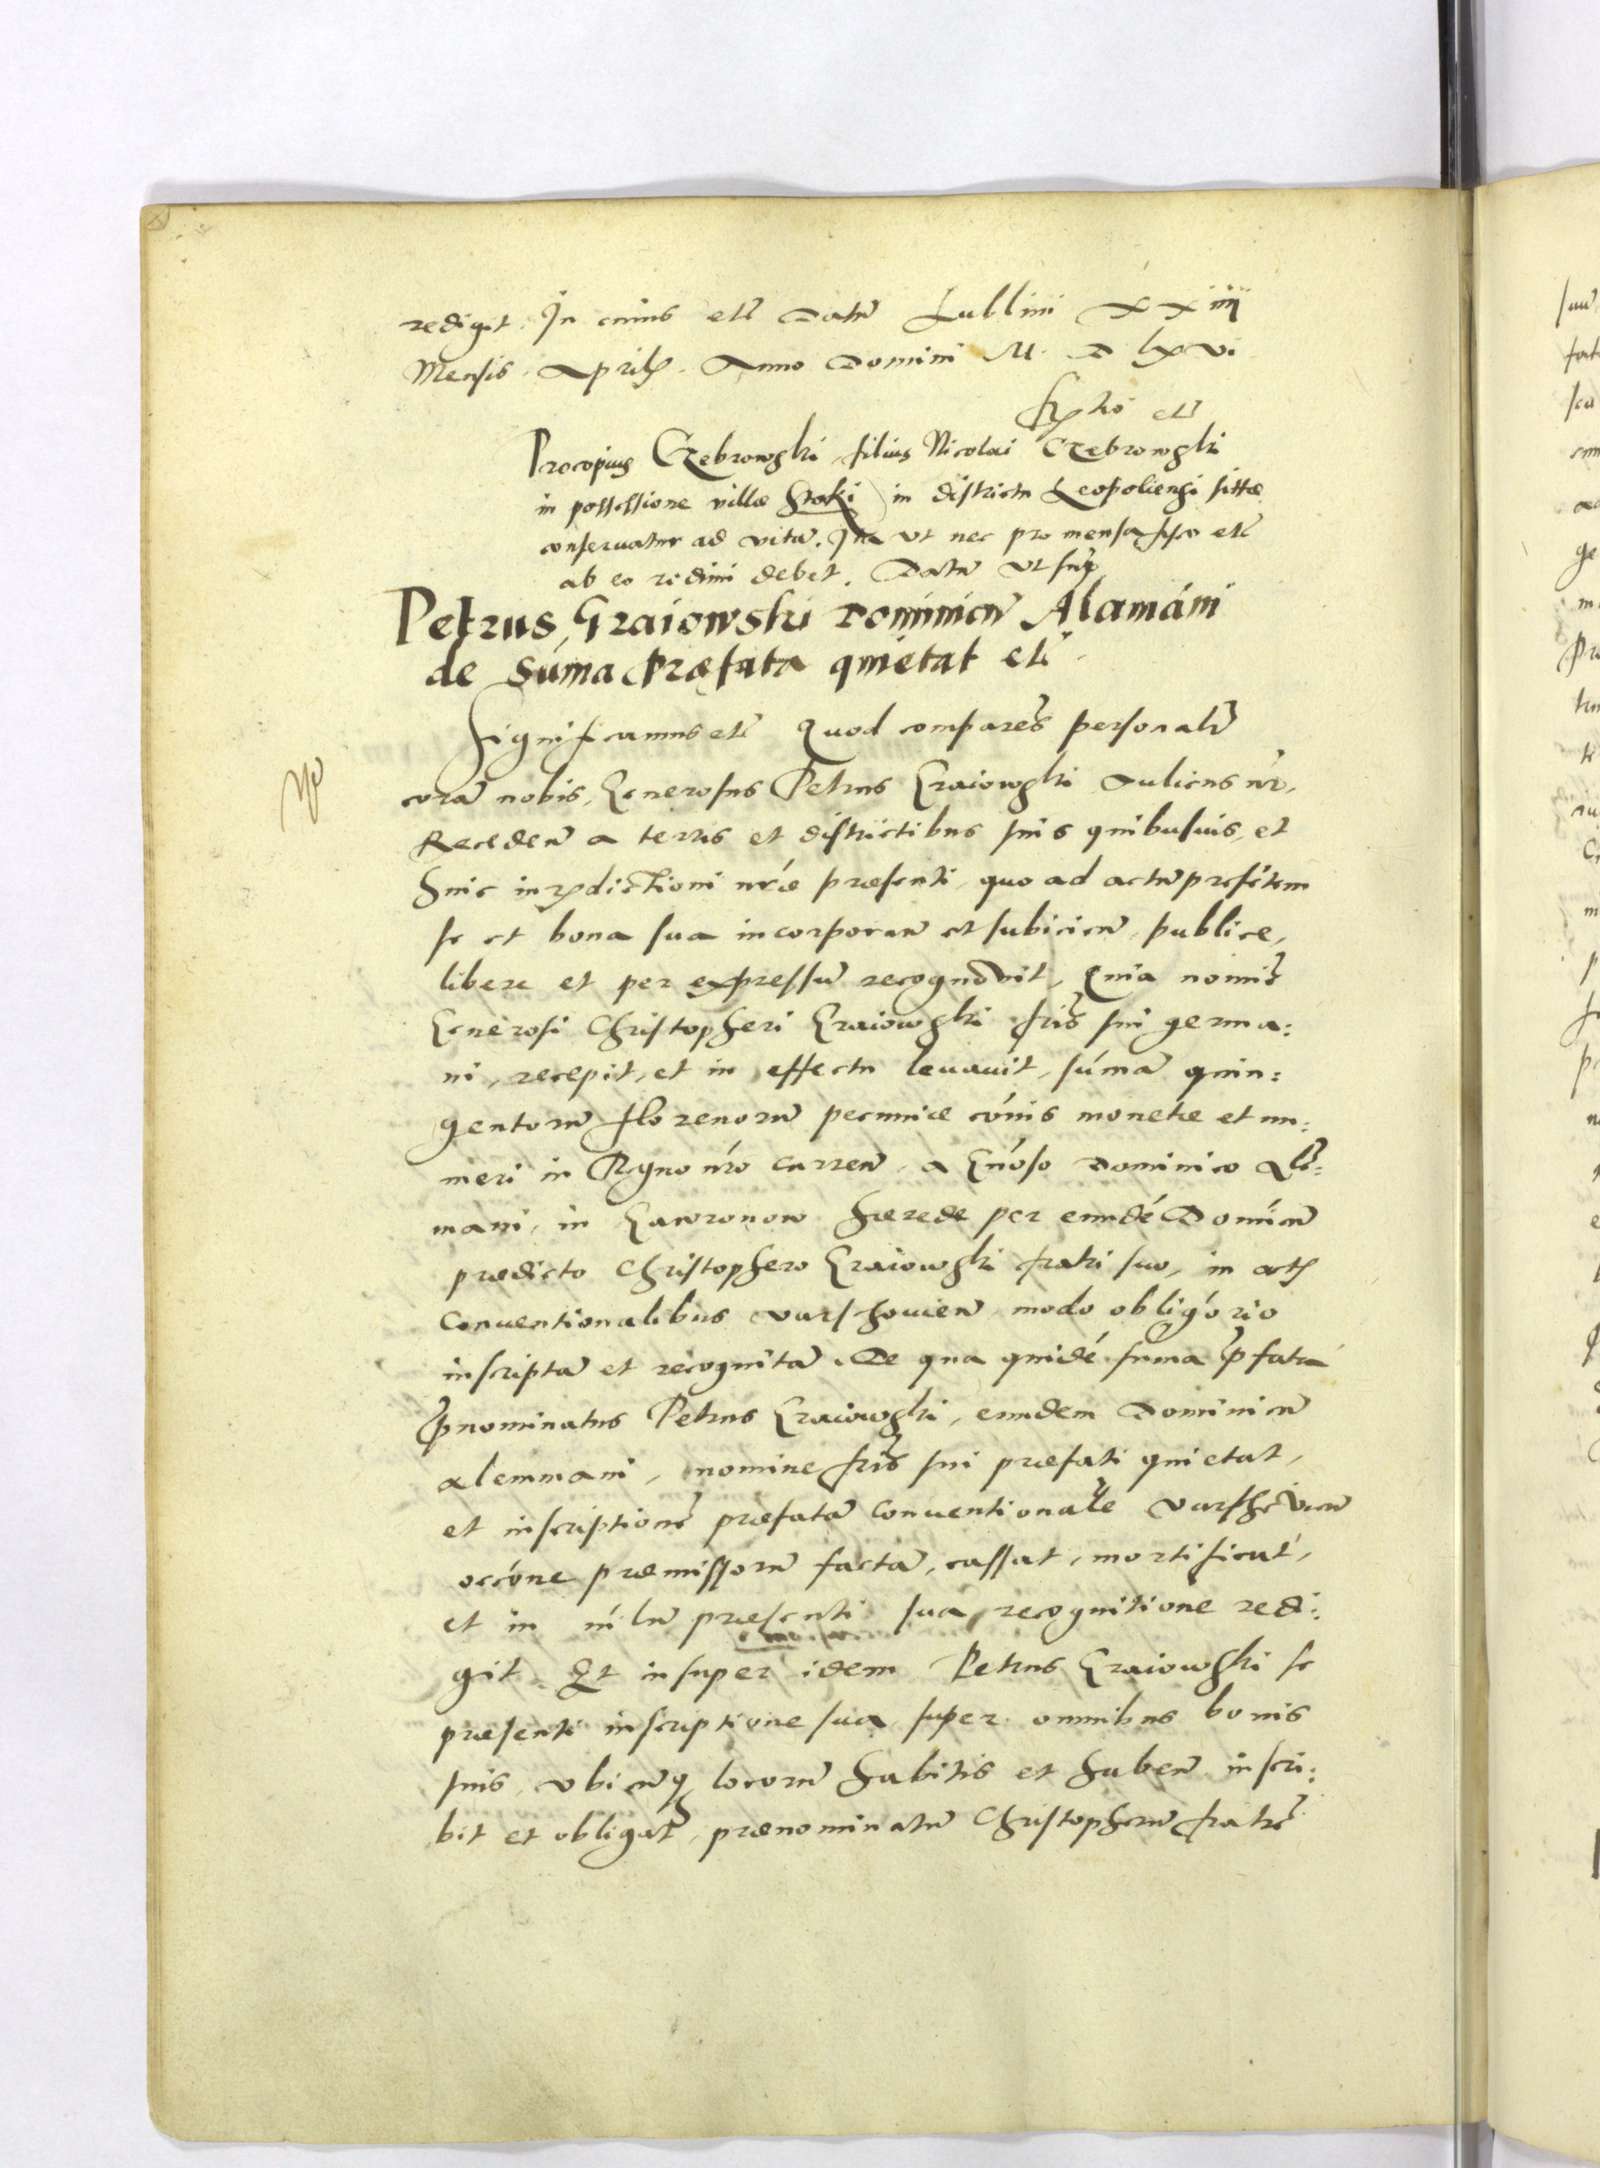 redigit. In cuius etc̃ Datũ Lublini XXiiii
Mensis. Aprilis. Anno Domini M. D lxvi
etc̃
Procopius Czebrowski, filius Nicolai Czebrowski
in possessione villæ Stoki in districtu Leopoliensi sittæ
conseruatur ad vitã. Ita vt nec pro mensa etc̃
ab eo redimi debet. Datũ vt supra
Petrus Graiowski Dominicũ Alamáni
de súma præfata quietat etc̃
Significamus etc̃ Quod comparẽs personalr̃
corã nobis, Generosus Petrus Graiowski Aulicus nr̃,
Recedeñ a terris et districtibus suis quibusuis, et
huic iurisdictioni nr̃æ præsenti, quo ad actũ presẽtem
se et bona sua incorporañ et subicieñ, publice,
libere et per expressũ recognouit, Quia nomiẽ
Generosi Christopheri Graiowski fr̃is sui germa:
ni, recepit, et in effectu leuauit, súmã quin:
gentorũ florenorũ pecuniæ cóĩis monetæ et nu:
meri in Regno nr̃o curreñ, a Gñoso Dominico Ale:
mani, in Gawronow hærede per eundẽ Domĩcũ
prædicto Christophero Graiowski fratri suo, in actis
Conuentionalibus varschouieñ modo obligõrio
inscriptã et recognitã. De qua quidẽ suma p̃fata
p̃nominatus Petrus Graiowski, eundem Dominicũ
alemmani, nomine fr̃is sui præfati quietat,
et inscriptionẽ præfatã conuentionalẽ varscheuieñ
occóne præmissorũ factã, cassat, mortificat,
et in nĩlũ præsenti sua recognitione redi:
git. Et insuper idem Petrus Graiowski se
præsenti inscriptione sua super omnibus bonis
suis, vbicũq locorũ habitis et habeñ inscri:
bit et obligat, prænominatũ Christopherũ fratrẽ